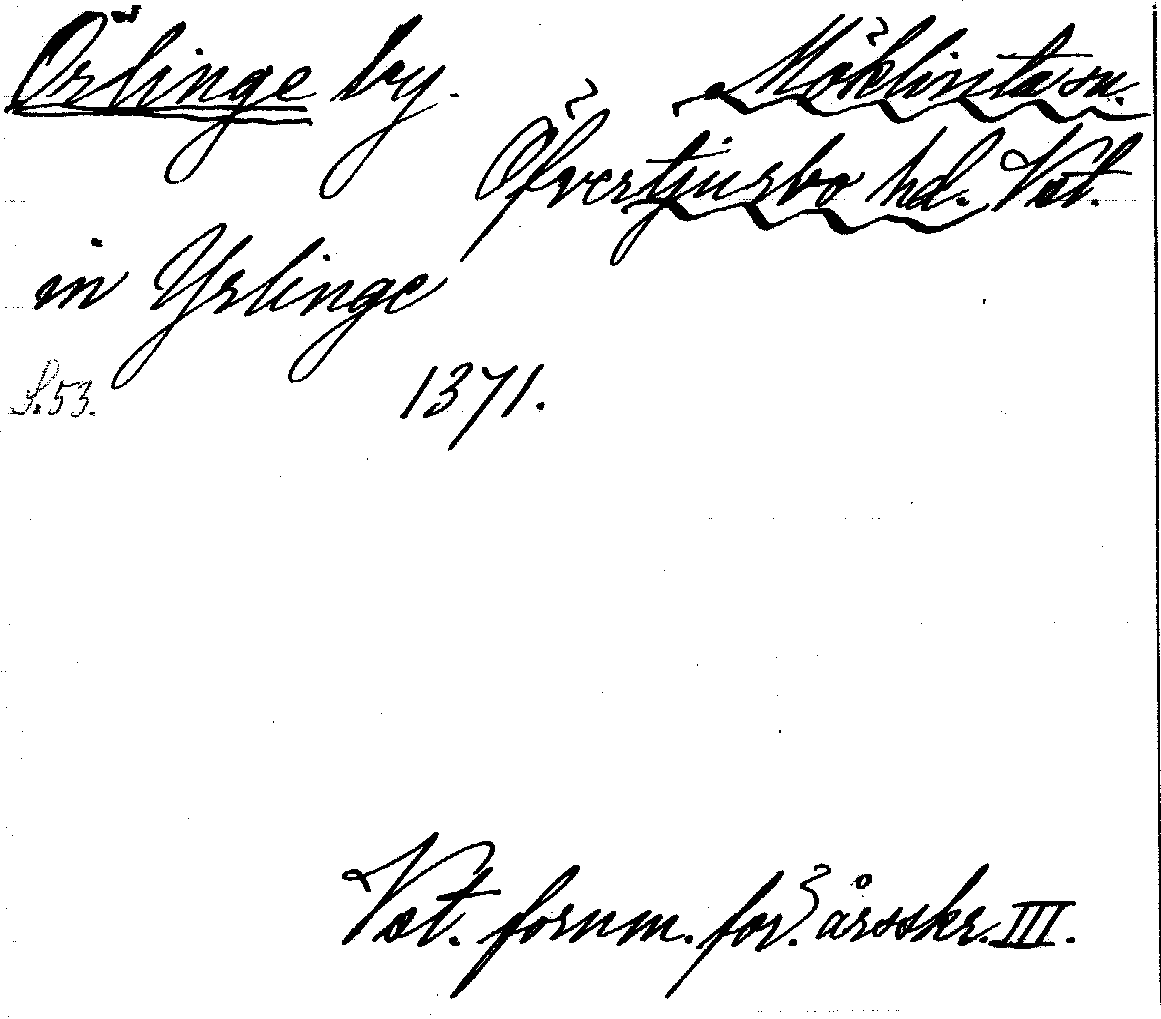 Örlinge by. Möklinta sn.
Öfvertjurbo hd. Vst.
in Yrlinge
S. 53. 1371.
Vst. fornm. för. årsskr. III.